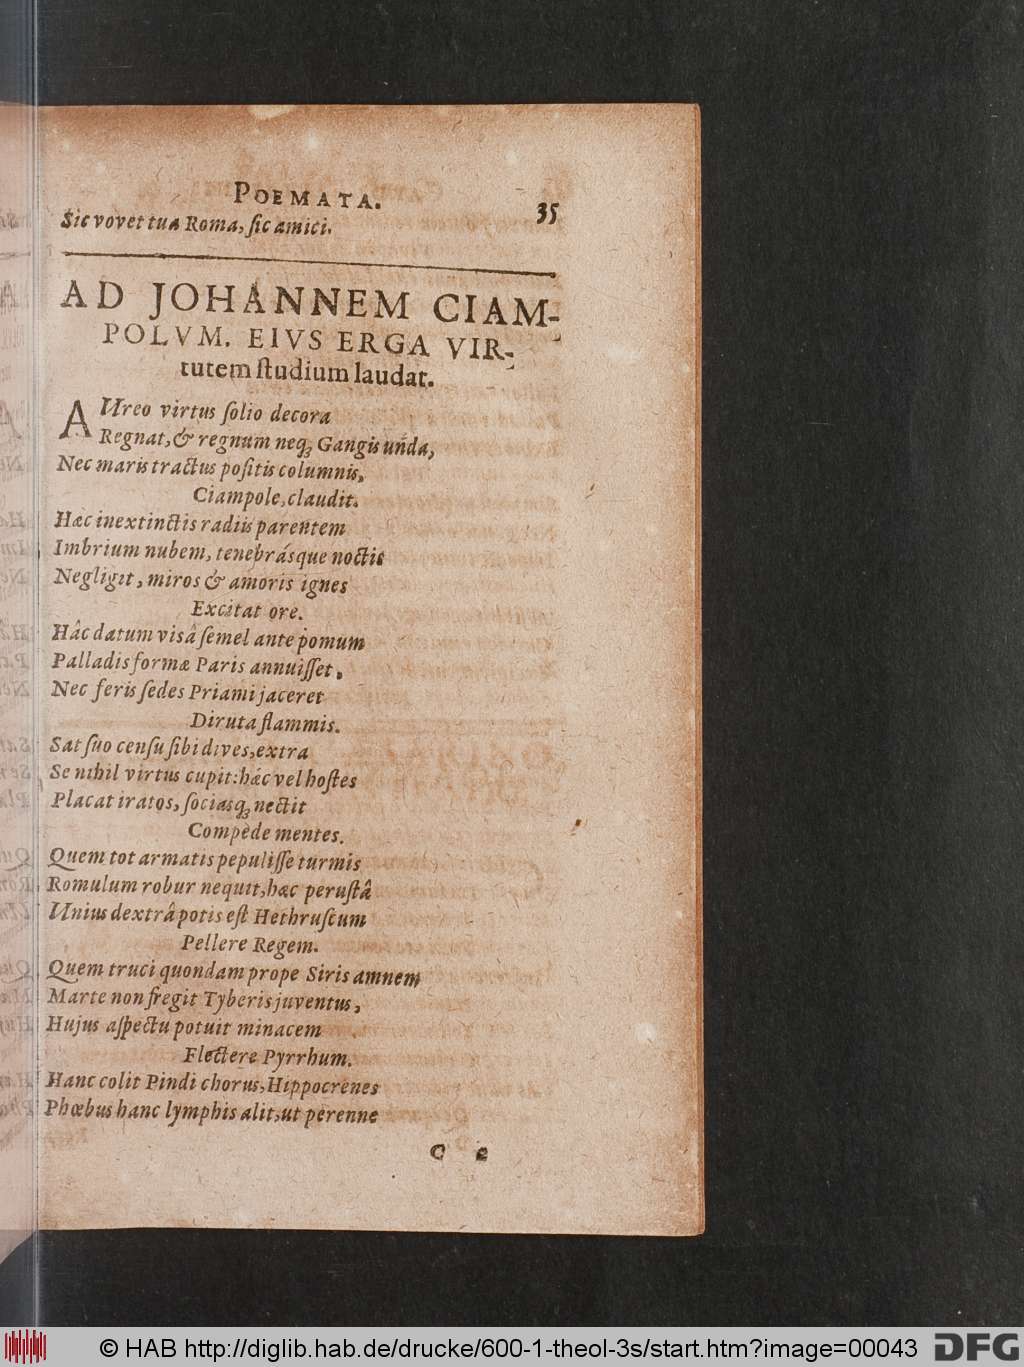 POEMATA.
35
Sic vovet tua Roma, ſic amici.
AD JOHANNEM CIAM-
POLVM. EIVS ERGA VIR-
tutem ſtudium laudat.
AUreo virtus ſolio decora
Regnat, & regnum neq; Gangis unda,
Nec maris tractus poſitis columnis,
Ciampole, claudit.
Hæc inextinctis radiis parentem
Imbrium nubem, tenebrásque noctis
Negligit, miros & amoris ignes
Excitat ore.
Hâc datum visâ ſemel ante pomum
Palladis formæ Paris annuiſſet,
Nec feris ſedes Priami jaceret
Diruta flammis.
Sat ſuo cenſu ſibi dives, extra
Se nihil virtus cupit: hác vel hoſtes
Placat iratos, ſociasq; nectit
Compede mentes.
Quem tot armatis pepuliſſe turmis
Romulum robur nequit, hæc peruſtâ
Unius dextrâ potis eſt Hethruſcum
Pellere Regem.
Quem truci quondam prope Siris amnem
Marte non fregit Tyberis juventus,
Hujus aſpectu potuit minacem
Flectere Pyrrhum.
Hanc colit Pindi chorus, Hippocrenes
Phœbus hanc lymphis alit, ut perenne
C e
© HAB http://diglib.hab.de/drucke/600-1-theol-3s/start.htm?image=00043
DFG